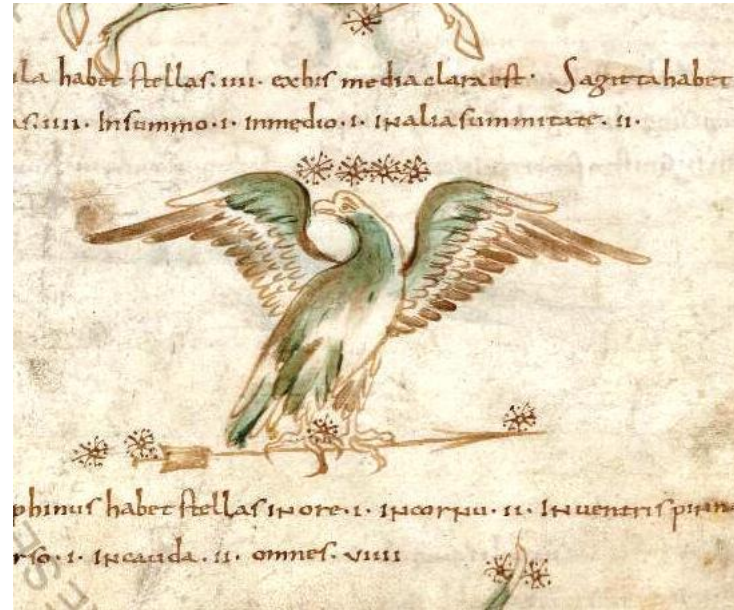 ula habet stellas. iiii. ex his media clara est. Sagitta habet
as. iiii. In summo. i. in medio. i. in alia summitate. ii.
phinus habet stellas in ore. i. in cornu. ii. In ventris pinn
rso. i. in cauda. ii. omnes. viiii